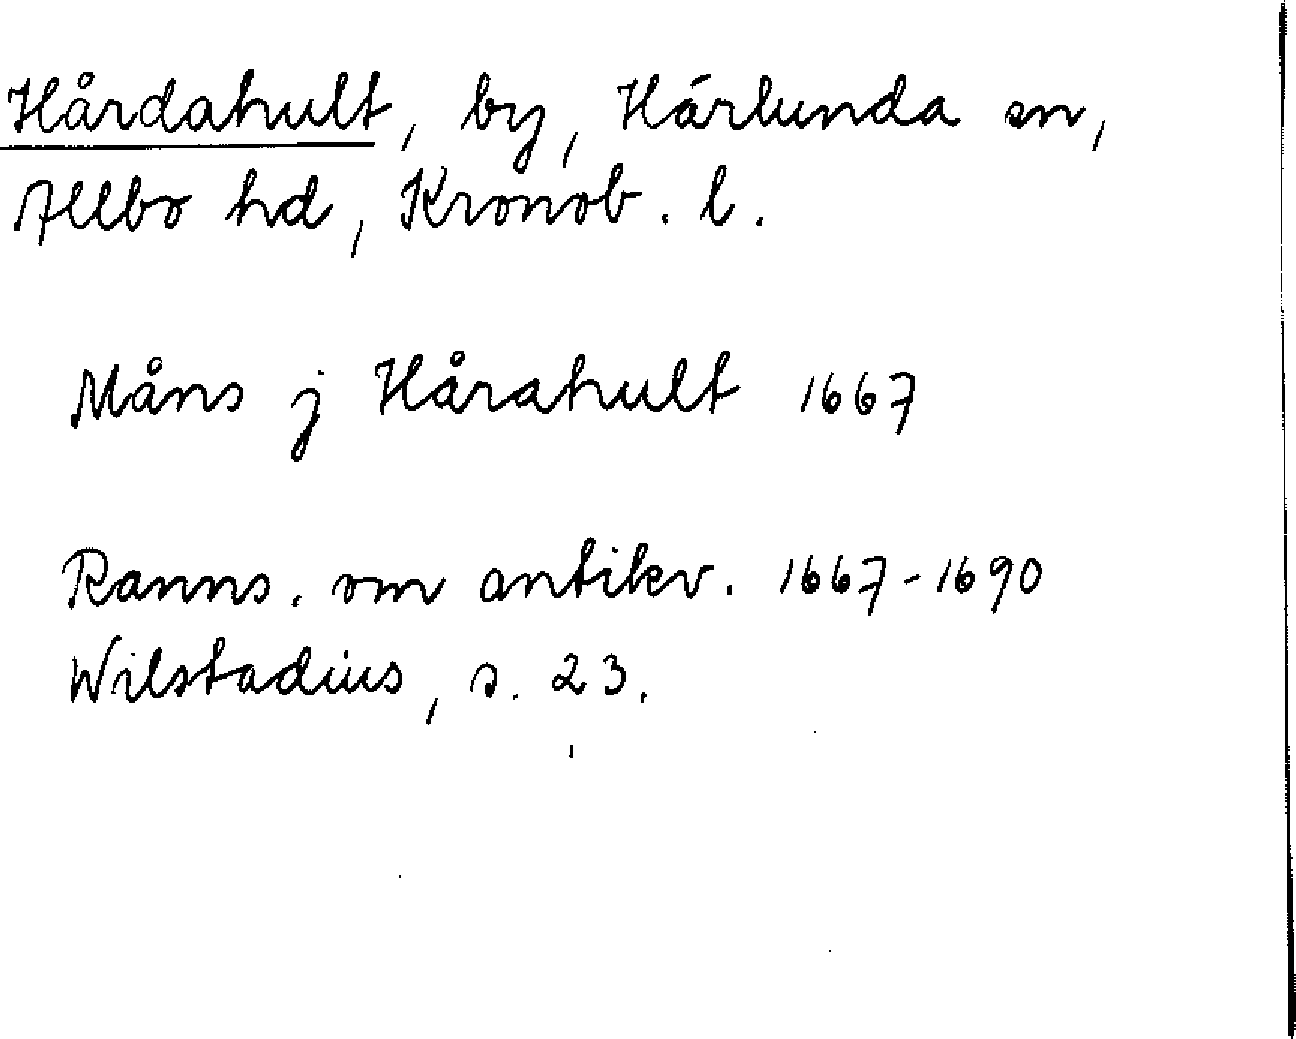 Hårdahult, by, Härlunda sn,
Allbo hd, Kronob. l.
Måns j Hårahult 1667
Ranns. om antikv. 1667-1690
Wilstadius, s. 23.